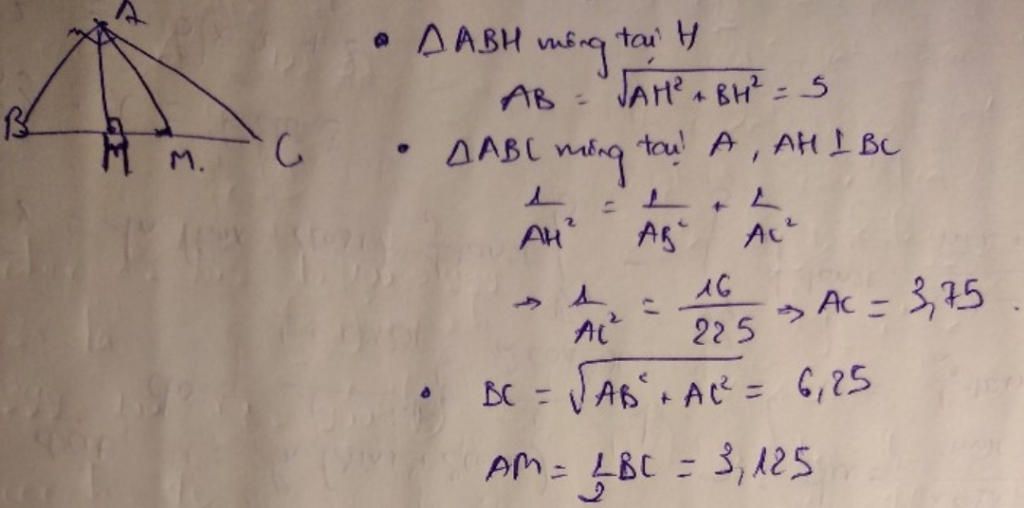 A
B H M. C
• ΔABH vuông tại H
AB = √AH² + BH² = 5
• ΔABC vuông tại A, AH ⊥ BC
1/AH² = 1/AB² + 1/AC²
→ 1/AC² = 16/225 → AC = 3,75.
• BC = √AB² + AC² = 6,25
AM = 1/2 BC = 3,125